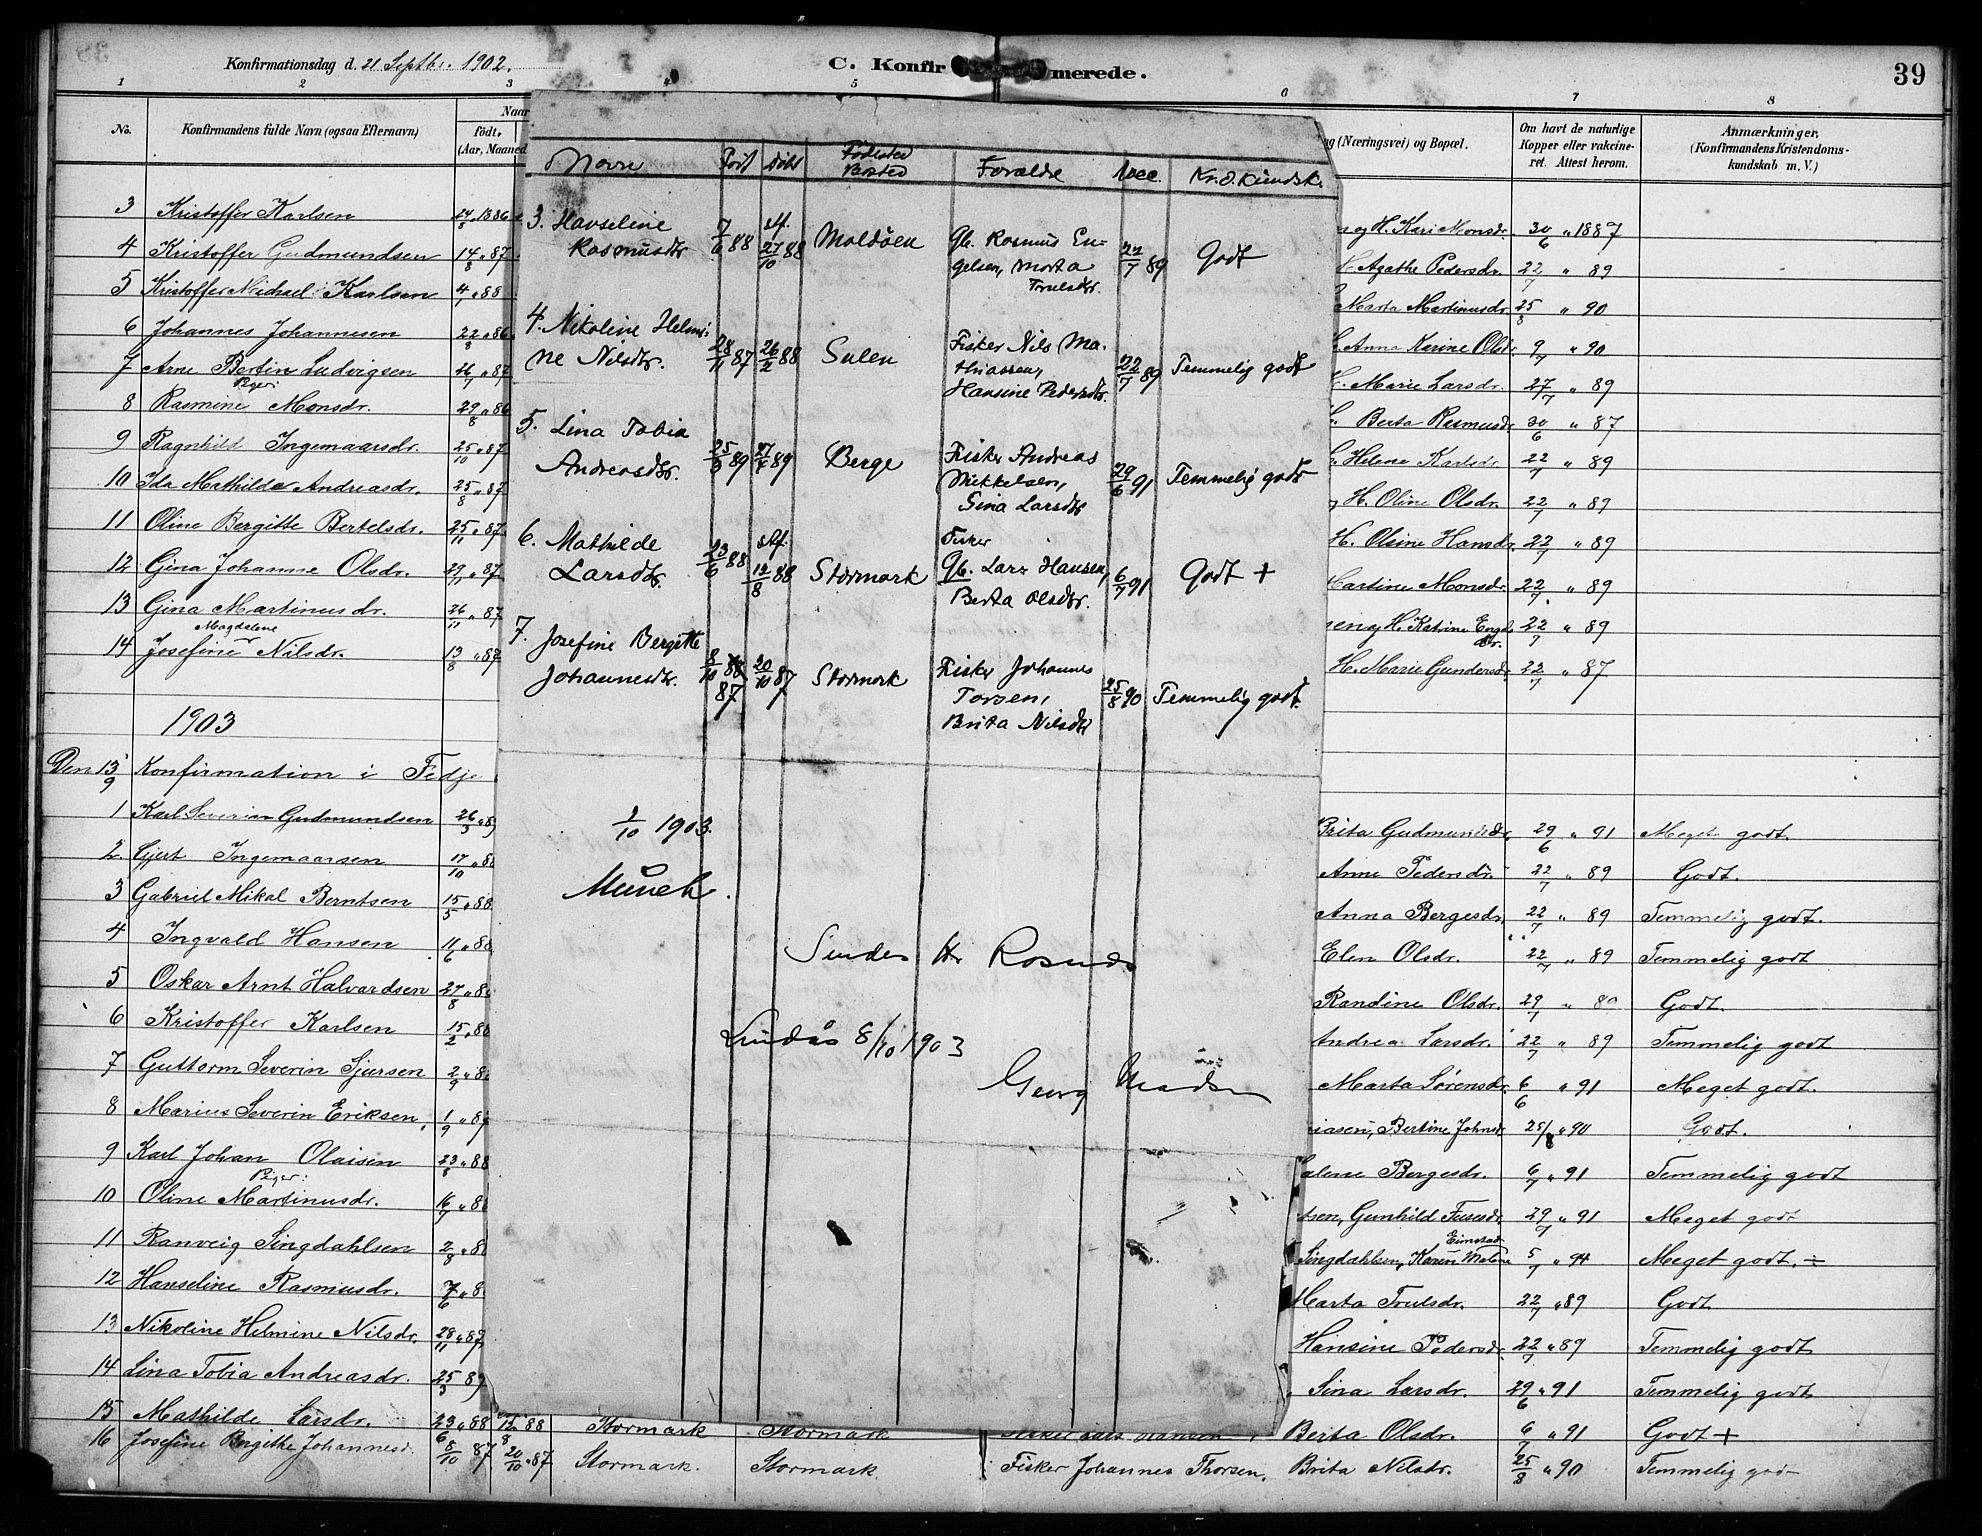 Konfirmationsdag d. 21 Septbr. 1902.
C. Konfirmerede.
39
1 2 3 5 6 7 8
No. Konfirmandens fulde Navn (ogsaa Efternavn) Naar födt, (Aar, Maaned (Næringsvei) og Bopæl. Om havt de naturlige Kopper eller vakcineret. Attest herom. Anmærkninger, (Konfirmandens Kristendomskundskab m. V.)
3 Kristoffer Karlsen 24/8 1886 og H. Kari Monsdr. 30/6 " 1887
4 Kristoffer Gudmundsen 14/8 " 87 H. Agathe Pedersdr. 22/7 " 89
5 Kristoffer Michael Karlsen 4/1 " 88 Marta Martinusdr. 25/8 " 90
6 Johannes Johannesen 22/8 " 86 Anna Karine Olsdr. 9/7 " 90
7 Arne Bertin Ludvigsen 87 Marie Larsdr. 27/7 " 89
Piger:
8 Rasmine Monsdr. 29/8 " 86 Berta Rasmusdr. 30/6 " 87
9 Ragnhild Ingemaarsdr. 25/10 " 87 Helene Karlsdr. 22/7 " 89
10 Ida Mathilde Andreasdr. 25/8 " 87 H. Oline Olsdr. 22/7 " 89
11 Oline Bergitte Bertelsdr. 25/11 " 87 H. Olsine Hansdr. 22/7 " 89
12 Gina Johanne Olsdr. 87 Martine Monsdr. 22/7 " 89
13 Gina Martinusdr. 26/11 " 87 H. Katrine 22/7 " 89
14 Josefine Magdalene Nilsdr. 13/8 " 87 H. Marie Gundersdr. 22/7 " 87
1903
Den 13/9 Konfirmation i Fedje
1 Karl Severin Gudmundsen 26/3 " 89 Brita Gudmundsdr. 29/6 " 91 Meget godt.
2. Gjert Ingemaarsen 17/10 " 88 Anne Pedersdr. 22/7 " 89 Godt.
3 Gabriel Mikal Berntsen 15/5 " 88 Anna Bergesdr. 22/7 " 89 Temmelig godt.
4 Ingvald Hansen 11/6 " 88 Elen Olsdr. 22/7 " 89 Temmelig godt
5 Oskar Arnt Halvardsen 27/8 " 8 Randine Olsdr. 29/7 " Godt.
6 Kristoffer Karlsen 15/2 " 88 Andrea Larsdr. 22/7 " 89 Temmelig godt
7 Guttorm Severin Sjursen 2/9 " 8 Marta Sørensdr. 6/6 " 91 Meget godt.
8 Marius Severin Eriksen, 1/9 " 87 Bertine Johnsdr. 25/8 " 90 Godt.
9 Karl Johan Olaisen 23/8 " 88 Malene Bergesdr. 6/7 " 91 Temmelig godt
Piger:
10 Oline Martinusdr. 16/7 " 88 Gunhild 29/7 " 91 Meget godt
11 Ranveig Singdahlsen 2/8 " 8 Singdahlsen, Karen Malene Eimstad 5/7 " 94 Meget godt. ÷
12 Hanseline Rasmusdr. 7/6 " 8 Marta Trulsdr. 22/7 " 89 Godt
13 Nikoline Helmine Nilsdr. 28/11 " 87 Hansine Pedersdr. 22/7 " 89 Temmelig godt
14 Lina Tobia Andreasdr. 25/3 89 Sina Larsdr. 29/6 " 91 Temmelig godt
15 Mathilde Larsdr. 23/6 " 88 12/8 88 Stormark Stormark Fisker Lars Hansen, Berta Olsdr. 6/7 " 91 Godt +
16 Josefine Bergitte Johannesd. 8/10 87 20/10 " 87 Stormark. Stormark. Fisker Johannes Thorsen, Brita Nilsdr. 25/8 " 90 Temmelig godt
Navn Født Døbt Fødested Bosted Forældre Vacc. Kr.d.kundsk.
3. Hanseline Rasmusdtr 7/6 88 stf. 27/10 88 Moldøen Gb. Rasmus Engelsen, Marta Trulsdtr. 22/7 89 Godt
4. Nikoline Helmine Nilsdtr. 28/11 87 26/2 88 Sulen Fisker Nils Mathiassen, Hansine Pedersdtr. 22/7 89 Temmelig godt
5. Lina Tobia Andreasdtr. 25/3 89 27/4 89 Berge Fisker Andreas Mikkelsen, Sina Larsdtr 29/6 91 Temmelig godt
6. Mathilde Larsdtr. 23/6 88 stf. 12/8 88 Stormark Fisker Gb. Lars Hansen, Berta Olsdtr. 6/7 91 Godt +
7. Josefine Bergitte Johannesdtr. 8/10 88 87 20/10 87 Stormark Fisker Johannes Torsen, Brita Nilsdtr 25/8 90 Temmelig godt.
1/10 1903.
Munch.
Sendes Hr
Lindås 8/10 1903
Georg